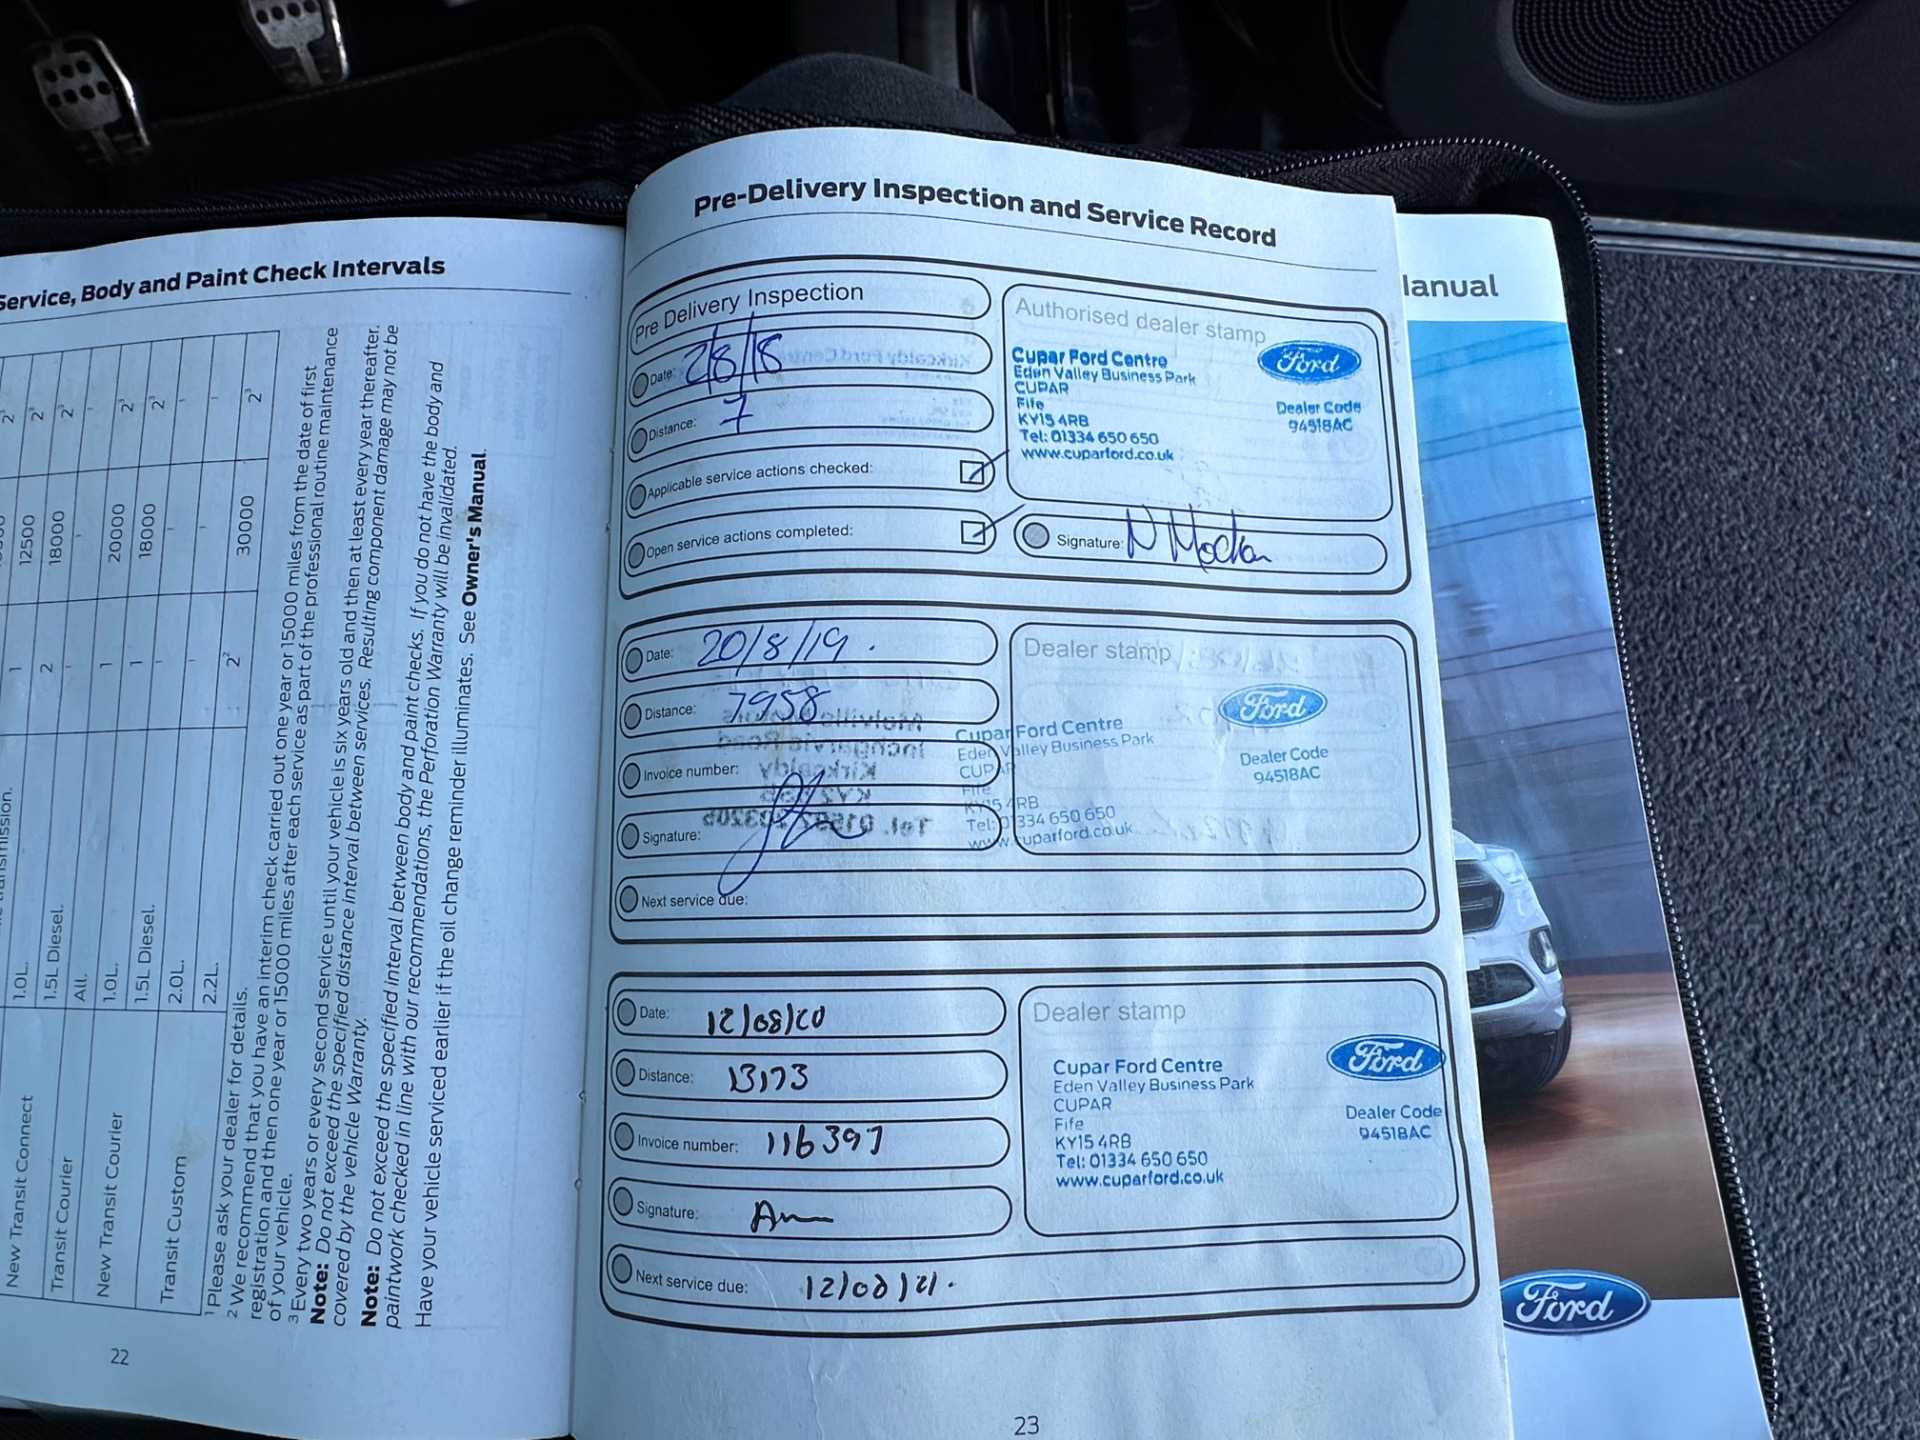 Service, Body and Paint Check Intervals
2³
12500
1
1.0L.
New Transit Connect
2³
18000
2
1.5L Diesel.
Transit Courier
2³
-
-
All.
-
20000
1
1.0L.
New Transit Courier
2³
18000
1
1.5L Diesel.
2³
-
-
2.0L.
Transit Custom
-
-
-
2.2L.
-
2³
30000
2²
¹ Please ask your dealer for details.
² We recommend that you have an interim check carried out one year or 15000 miles from the date of first
registration and then one year or 15000 miles after each service as part of the professional routine maintenance
of your vehicle.
³ Every two years or every second service until your vehicle is six years old and then at least every year thereafter.
Note: Do not exceed the specified distance interval between services. Resulting component damage may not be
covered by the vehicle Warranty.
Note: Do not exceed the specified interval between body and paint checks. If you do not have the body and
paintwork checked in line with our recommendations, the Perforation Warranty will be invalidated.
Have your vehicle serviced earlier if the oil change reminder illuminates. See Owner's Manual.
22
Pre-Delivery Inspection and Service Record
Pre Delivery Inspection
Date: 2/8/18
Distance: 7
Applicable service actions checked:
Open service actions completed:
Authorised dealer stamp
Cupar Ford Centre
Eden Valley Business Park
CUPAR
Fife
KY15 4RB
Tel: 01334 650 650
www.cuparford.co.uk
Ford
Dealer Code
94518AC
Signature:
Date: 20/8/19.
Distance: 7958
Invoice number:
Signature:
Next service due:
Dealer stamp
Cupar Ford Centre
Eden Valley Business Park
CUPAR
Fife
KY15 4RB
Tel: 01334 650 650
www.cuparford.co.uk
Ford
Dealer Code
94518AC
Date: 12/08/20
Distance: 13173
Invoice number: 116397
Signature:
Next service due: 12/08/21.
Dealer stamp
Cupar Ford Centre
Eden Valley Business Park
CUPAR
Fife
KY15 4RB
Tel: 01334 650 650
www.cuparford.co.uk
Ford
Dealer Code
94518AC
23
Manual
Ford